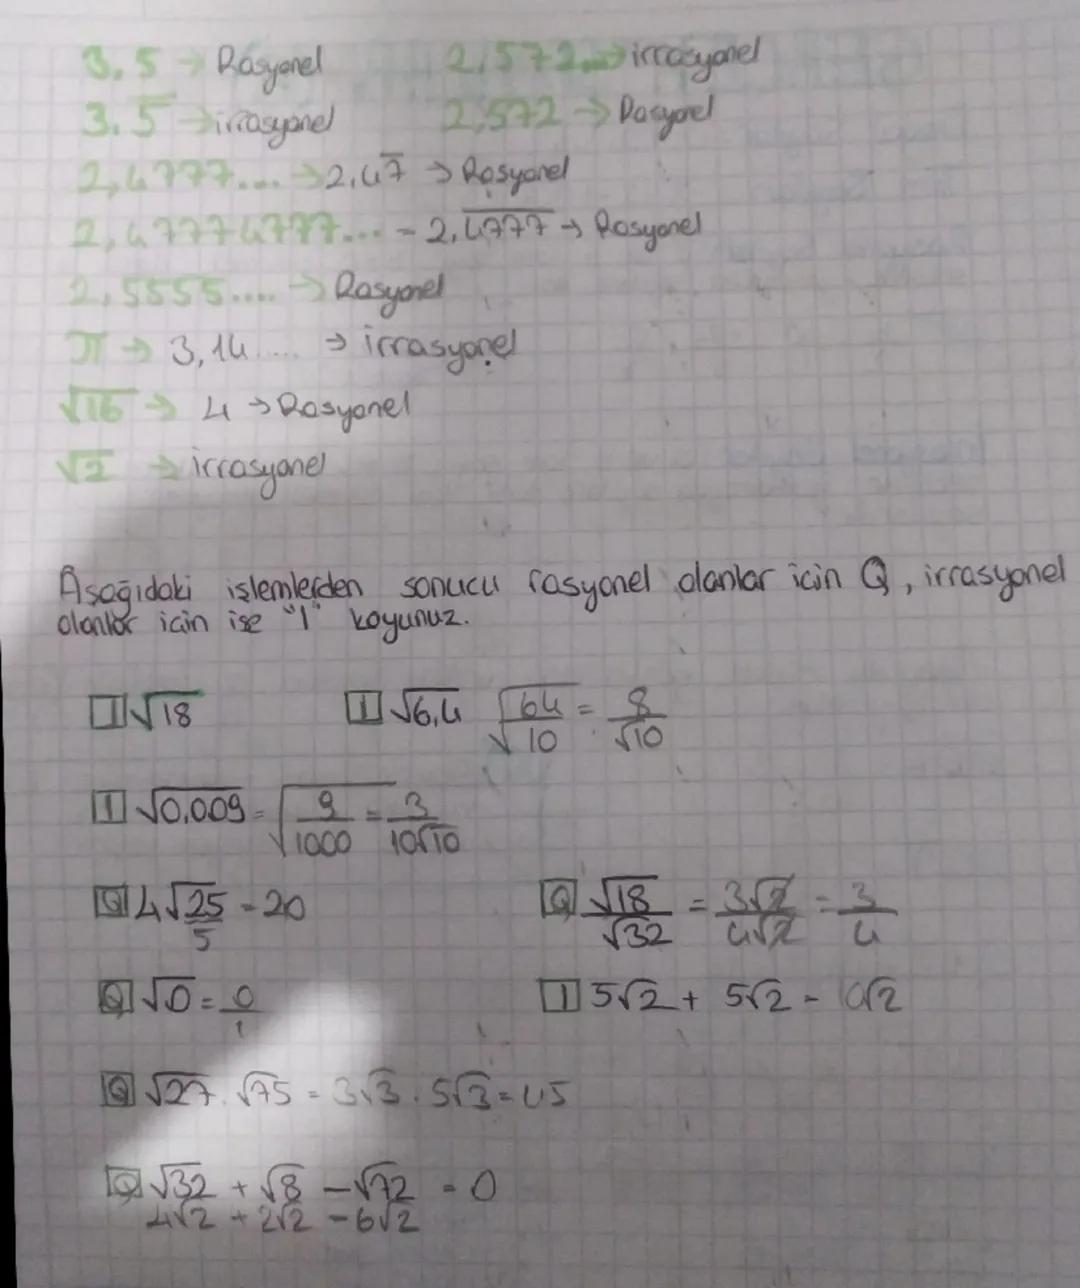 3,5 → Rasyonel 2,572... → irrasyonel
3,5̅ → irrasyonel 2,572 → Rasyonel
2,4777... → 2,47̅ → Rasyonel
2,47774777... - 2,4̅7̅7̅7̅ → Rasyonel
2,5555.... → Rasyonel
π → 3,14.... → irrasyonel
√16 → 4 → Rasyonel
√2 → irrasyonel
Aşağıdaki işlemlerden sonucu rasyonel olanlar için Q, irrasyonel
olanlar için ise "I" koyunuz.
I √18 I √6,4 √(64/10) = 8/√10
I √0,009 = √(9/1000) = 3/(10√10)
Q 4√25 = 20 Q √18/√32 = 3√2/4√2 = 3/4
5
Q √0 = 0/1 I 5√2 + 5√2 = 10√2
Q √27 . √75 = 3√3 . 5√3 = 45
Q √32 + √8 - √72 = 0
4√2 + 2√2 - 6√2